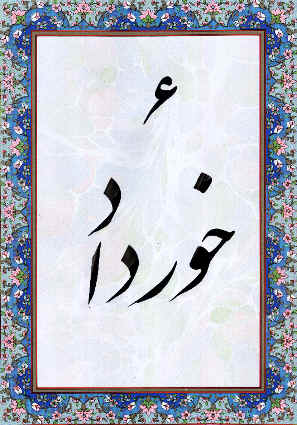 ۶
خورداد